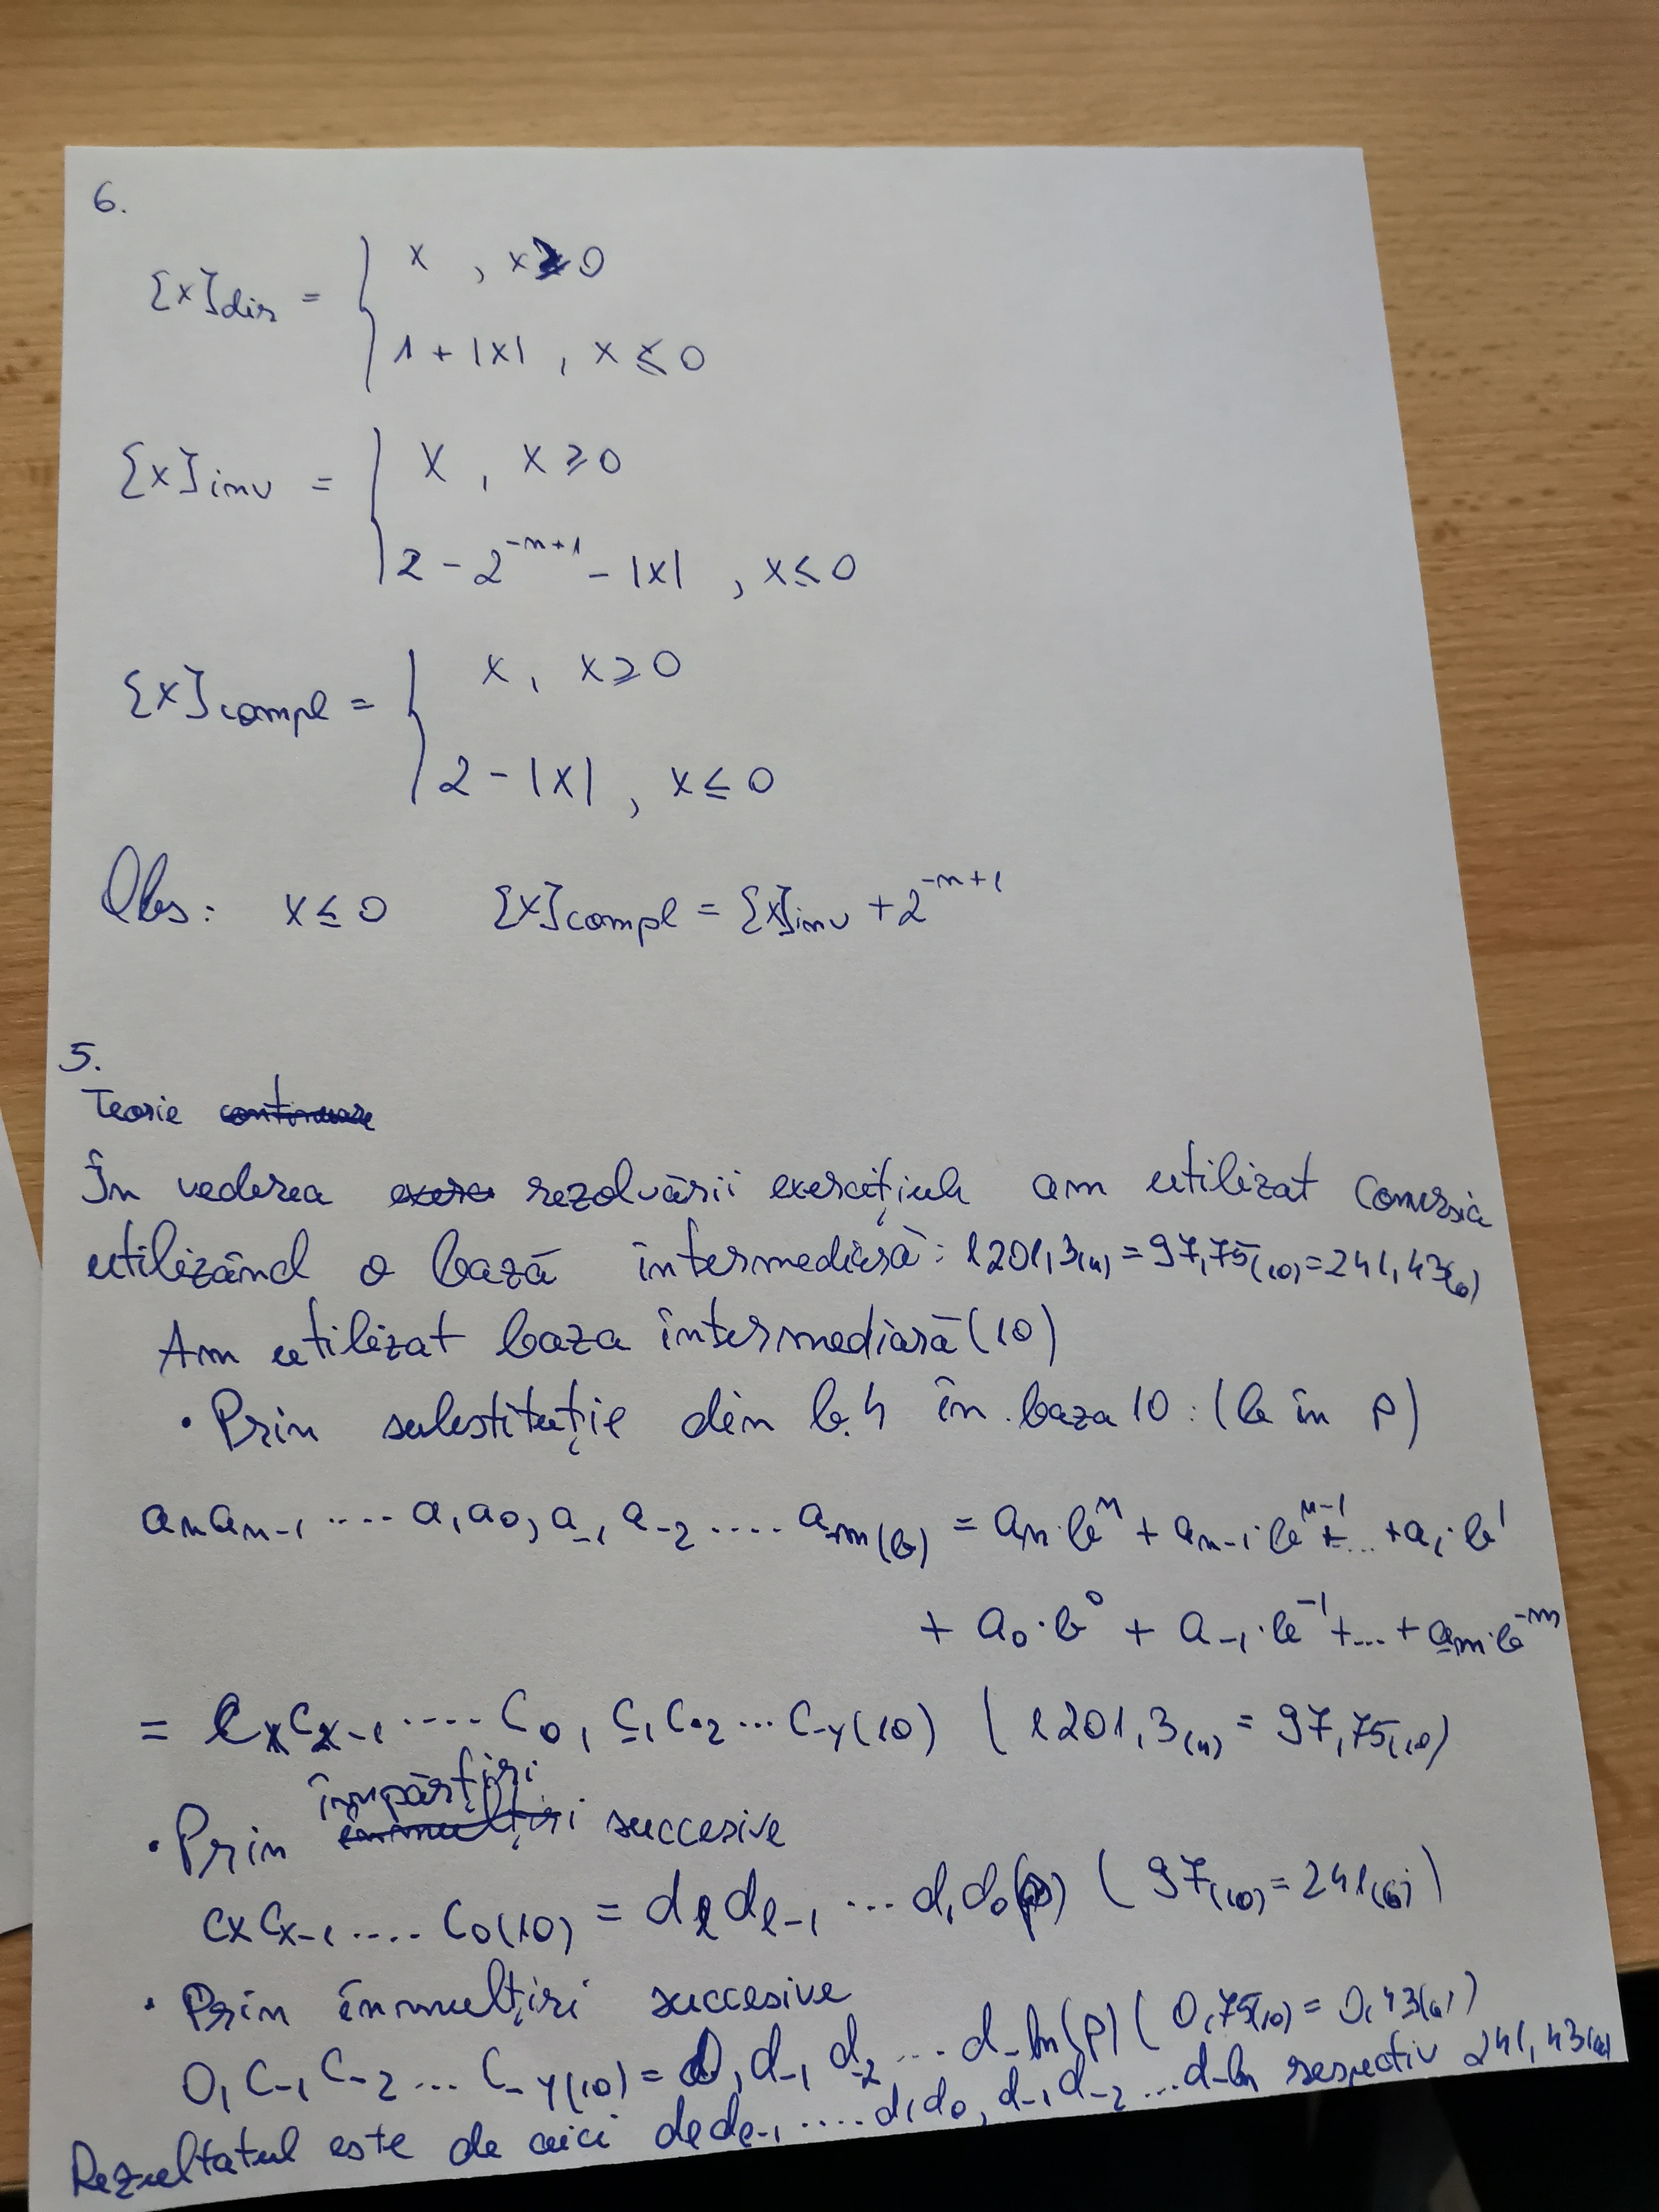 6.
[x]dir = { x , x ≥ 0
1 + |x| , x ≤ 0
[x]inv = { x , x ≥ 0
2 - 2^{-n+1} - |x| , x ≤ 0
[x]compl = { x , x ≥ 0
2 - |x| , x ≤ 0
Obs: x ≤ 0 [x]compl = [x]inv + 2^{-n+1}
5.
Teorie
În vederea rezolvării exercițiul am utilizat conversia
utilizând o bază intermediară: 1201,3(4) = 97,75(10) = 241,43(6)
Am utilizat baza intermediară (10)
• Prin substituție din b.4 în baza 10: (b în p)
a_n a_{n-1} .... a_1 a_0, a_{-1} a_{-2} .... a_{-m}(b) = a_n·b^n + a_{n-1}·b^{n-1} + ... + a_1·b^1
+ a_0·b^0 + a_{-1}·b^{-1} + ... + a_{-m}·b^{-m}
= c_x c_{x-1} .... c_0, c_{-1} c_{-2} ... c_{-y}(10) (1201,3(4) = 97,75(10))
• Prin împărțiri succesive
c_x c_{x-1} .... c_0(10) = d_l d_{l-1} ... d_1 d_0(p) (97(10) = 241(6))
• Prin înmulțiri succesive
0, c_{-1} c_{-2} ... c_{-y}(10) = 0, d_{-1} d_{-2} ... d_{-h}(p) (0,75(10) = 0,43(6))
Rezultatul este de aici d_l d_{l-1} .... d_1 d_0, d_{-1} d_{-2} ... d_{-h} respectiv 241,43(6)